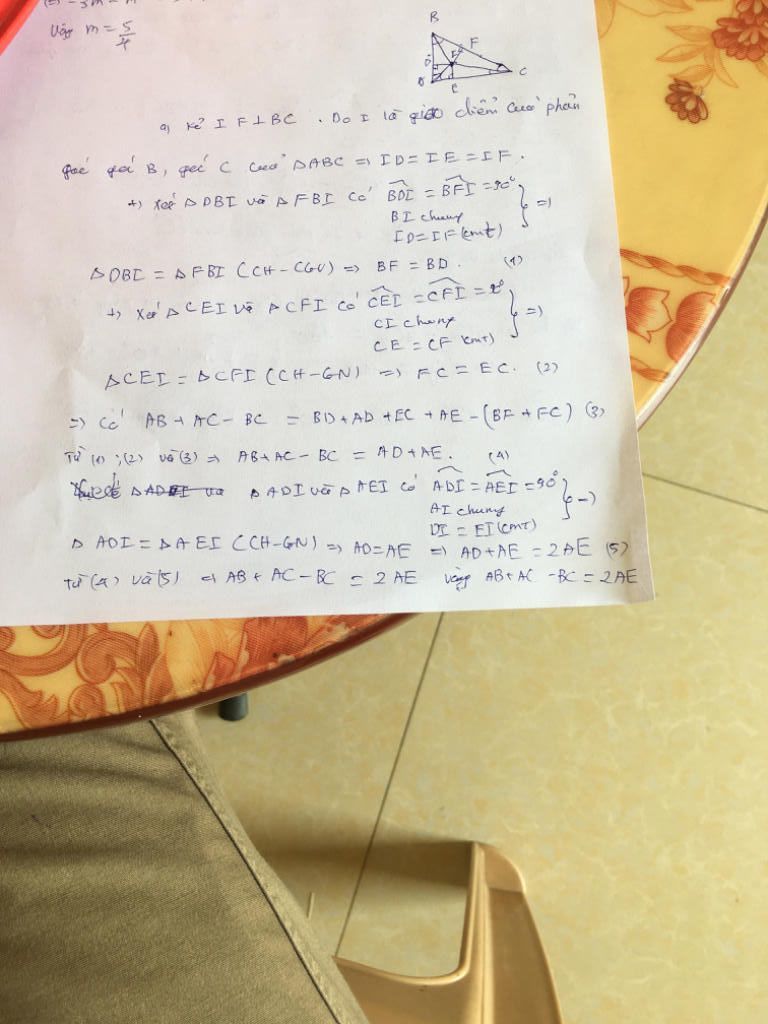 Vậy m = 5/4
B
F
D
I
C
E
a) Kẻ IF ⊥ BC. Do I là giao điểm của phân
giác góc B, góc C của ΔABC => ID = IE = IF.
+) Xét ΔDBI và ΔFBI có BDI = BFI = 90°
BI chung
ID = IF (cmt)
} =>
ΔDBI = ΔFBI (CH-CGV) => BF = BD. (1)
+) Xét ΔCEI và ΔCFI có CEI = CFI =
CI chung
CE = CF (cmt)
} =>
ΔCEI = ΔCFI (CH-GN) => FC = EC. (2)
=> Có AB + AC - BC = BD + AD + EC + AE - (BF + FC) (3)
Từ (1); (2) và (3) => AB + AC - BC = AD + AE. (4)
ΔADI và ΔAEI có ADI = AEI = 90°
AI chung
DI = EI (cmt)
} =>
ΔADI = ΔAEI (CH-GN) => AD = AE => AD + AE = 2AE (5)
Từ (4) và (5) => AB + AC - BC = 2AE vậy AB + AC - BC = 2AE